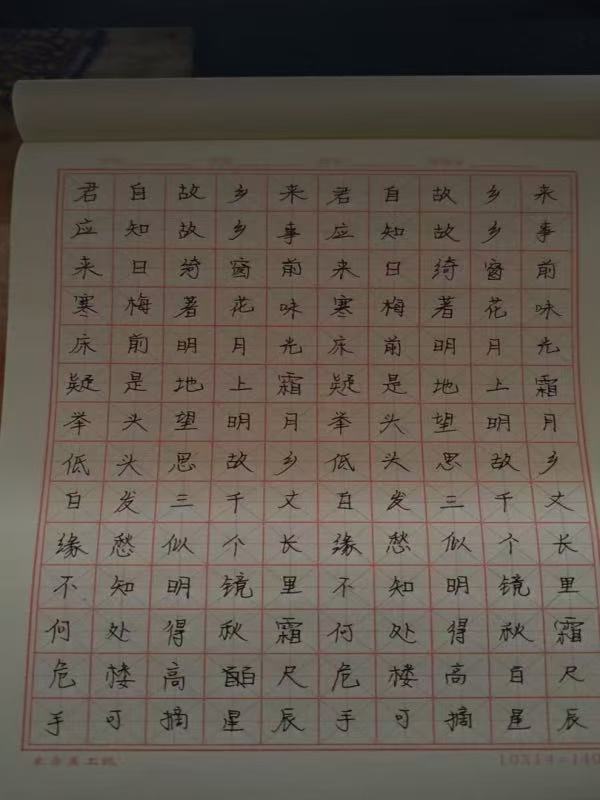 君自故乡来君自故乡来
应知故乡事应知故乡事
来日绮窗前来日绮窗前
寒梅著花味寒梅著花味
床前明月光床前明月光
疑是地上霜疑是地上霜
举头望明月举头望明月
低头思故乡低头思故乡
白发三千丈白发三千丈
缘愁似个长缘愁似个长
不知明镜里不知明镜里
何处得秋霜何处得秋霜
危楼高百尺危楼高百尺
手可摘星辰手可摘星辰
10X14=140